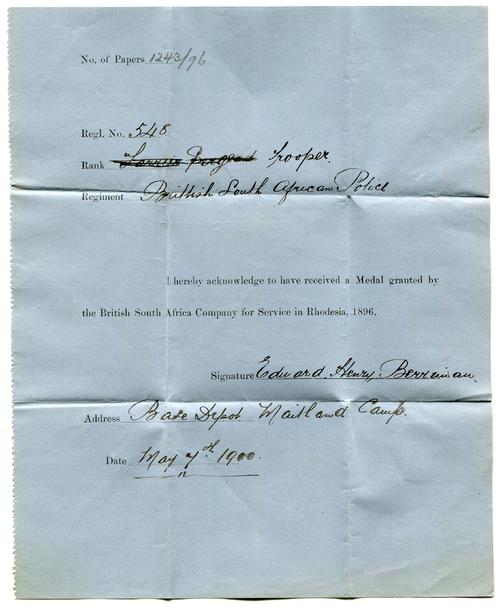 No. of Papers 1243/96
Regl. No. 548
Rank Farrier Sergeant Trooper.
Regiment British South African Police
I hereby acknowledge to have received a Medal granted by
the British South Africa Company for Service in Rhodesia, 1896.
Signature Edward Henry Berriman.
Address Base Depot Maitland Camp.
Date May 7th 1900.